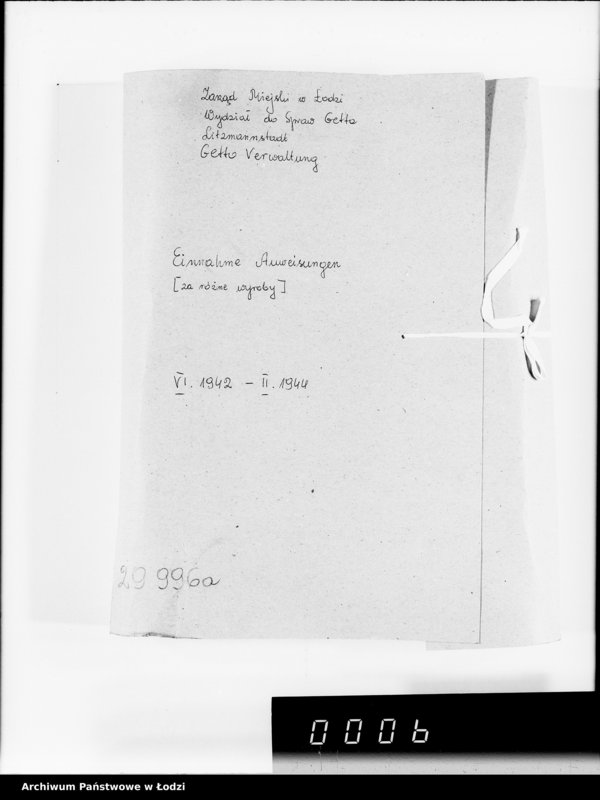 Zarząd Miejski w Łodzi
Wydział do Spraw Getta
Litzmannstadt
Getto Verwaltung
Einnahme Anweisungen
[za różne wyroby]
VI. 1942 – II. 1944
29 996a
0006
Archiwum Państwowe w Łodzi